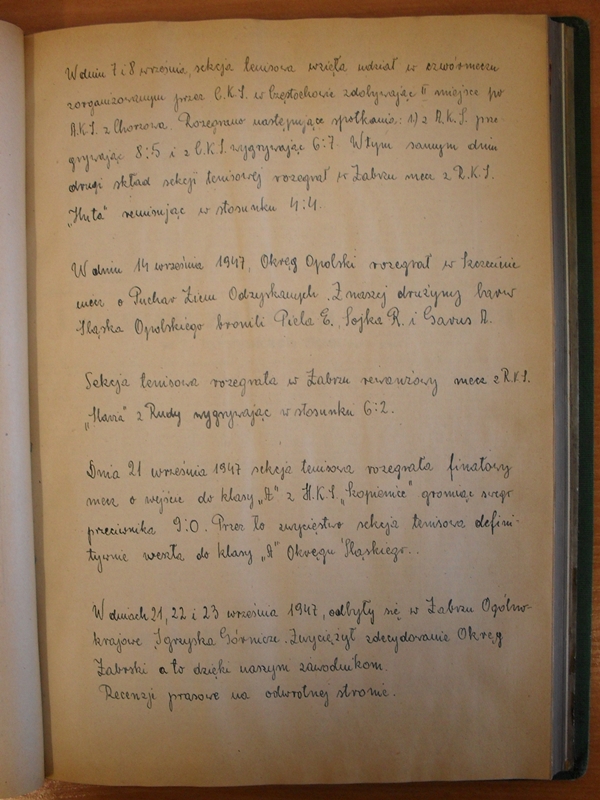 W dniu 7 i 8 września, sekcja tenisowa wzięła udział w czwórmeczu
zorganizowanym przez C.K.S. w Częstochowie zdobywając II miejsce po
A.K.S. z Chorzowa. Rozegrano następujące spotkania: 1) z A.K.S. prze-
grywając 8:5 i z C.K.S. wygrywając 6:7. W tym samym dniu
drugi skład sekcji tenisowej rozegrał w Zabrzu mecz z R.K.S.
„Huta” remisując w stosunku 4:4.
W dniu 14 września 1947, Okręg Opolski rozegrał w Szczecinie
mecz o Puchar Ziem Odzyskanych. Z naszej drużyny barw
Śląska Opolskiego bronili Piela E., Sojka R. i Gavus A.
Sekcja tenisowa rozegrała w Zabrzu rewanżowy mecz z R.K.S.
„Slavia” z Rudy wygrywając w stosunku 6:2.
Dnia 21 września 1947 sekcja tenisowa rozegrała finałowy
mecz o wejście do klasy „A” z H.K.S. „Łopienice” gromiąc swego
przeciwnika 9:0. Przez to zwycięstwo sekcja tenisowa defini-
tywnie weszła do klasy „A” Okręgu Śląskiego..
W dniach 21, 22 i 23 września 1947, odbyły się w Zabrzu Ogólno-
krajowe Igrzyska Górnicze. Zwyciężył zdecydowanie Okręg
Zabrski a to dzięki naszym zawodnikom.
Recenzji prasowe na odwrotnej stronie.